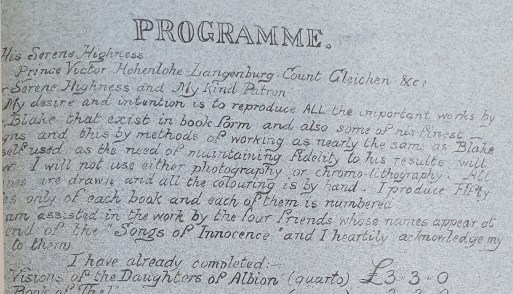 PROGRAMME.
His Serene Highness
Prince Victor Hohenlohe Langenburg Count Gleichen &c:
r Serene Highness and My Kind Patron
My desire and intention is to reproduce ALL the important works by
Blake that exist in book form and also some of his finest
gns and this by methods of working as nearly the same as Blake
self used as the need of maintaining fidelity to his results will
w: I will not use either photography or chromo-lithography. All
nes are drawn and all the colouring is by hand. I produce Fifty
es only of each book and each of them is numbered
am assisted in the work by the four friends whose names appear at
end of the "Songs of Innocence" and I heartily acknowledge my
to them
I have already completed:—
Visions of the Daughters of Albion" (quarto) £3-3-0
Book of Thel"